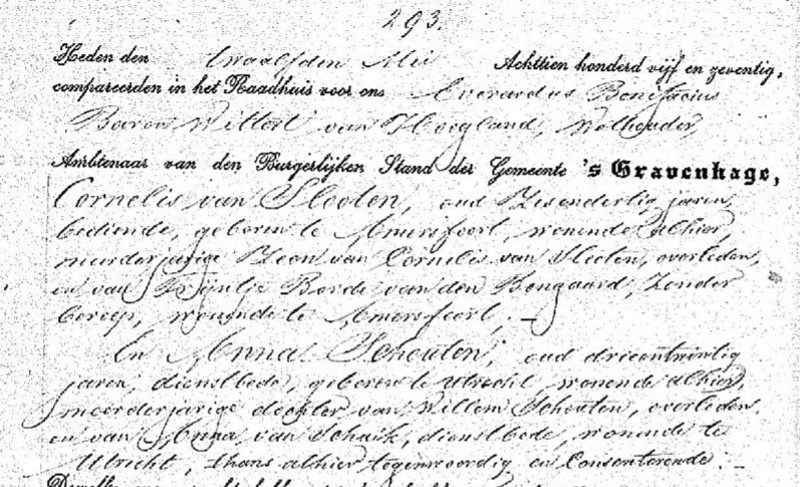 293.
Heden den twaalfden Mei Achttien honderd vijf en zeventig,
compareerden in het Raadhuis voor ons Everardus Bonifacius
Baron Wittert van Hoogland, Wethouder,
Ambtenaar van den Burgerlijken Stand der Gemeente 's Gravenhage,
Cornelis van Slooten, oud Zesendertig jaren,
bediende, geboren te Amersfoort, wonende alhier,
meerderjarige Zoon van Cornelis van Slooten, overleden,
en van Trijntje van den Bongaard, Zonder
beroep, wonende te Amersfoort, —
En Anna Schouten, oud drieentwintig
jaren, dienstbode, geboren te Utrecht, wonende alhier,
meerderjarige dochter van Willem Schouten, overleden,
en van Anna van Schaik, dienstbode, wonende te
Utrecht, thans alhier tegenwoordig en Consenterende. —